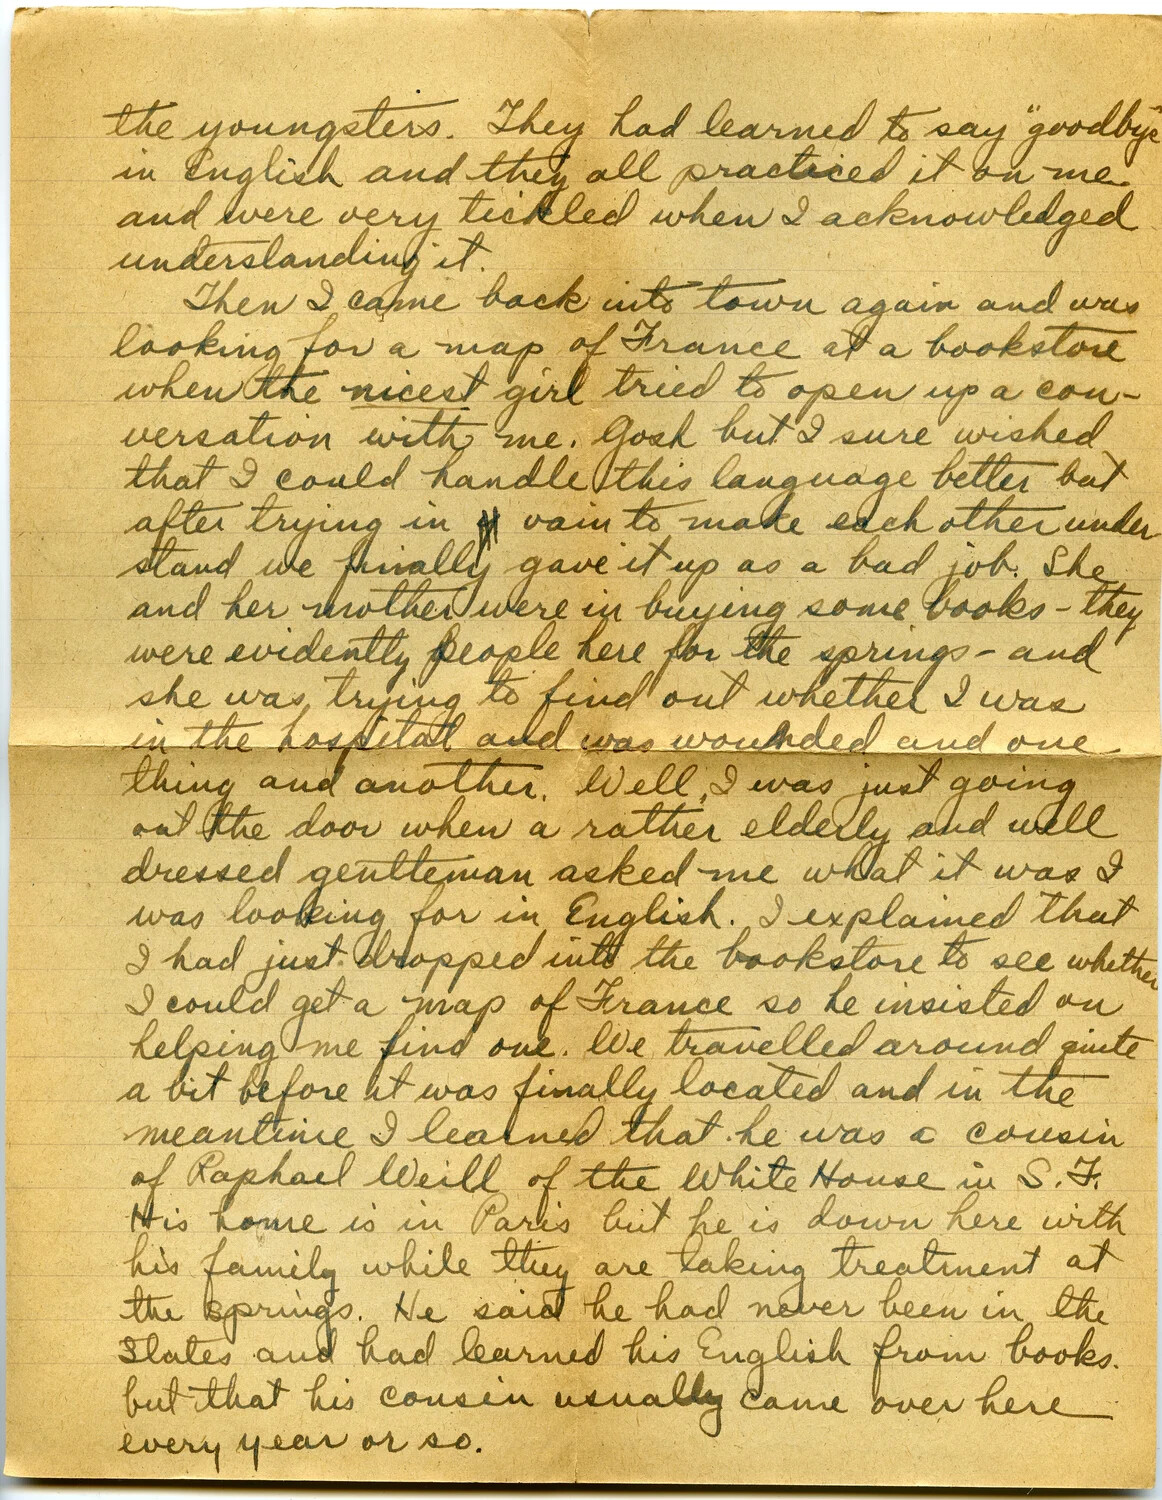 the youngsters. They had learned to say "goodbye"
in English and they all practiced it on me
and were very tickled when I acknowledged
understanding it.
Then I came back into town again and was
looking for a map of France at a bookstore
when the nicest girl tried to open up a con-
versation with me. Gosh but I sure wished
that I could handle this language better but
after trying in vain to make each other under
stand we finally gave it up as a bad job. She
and her mother were in buying some books - they
were evidently people here for the springs - and
she was trying to find out whether I was
in the hospital and was wounded and one
thing and another. Well, I was just going
out the door when a rather elderly and well
dressed gentleman asked me what it was I
was looking for in English. I explained that
I had just dropped into the bookstore to see whether
I could get a map of France so he insisted on
helping me find one. We travelled around quite
a bit before it was finally located and in the
meantime I learned that he was a cousin
of Raphael Weill of the White House in S.F.
His home is in Paris but he is down here with
his family while they are taking treatment at
the springs. He said he had never been in the
States and had learned his English from books.
but that his cousin usually came over here
every year or so.